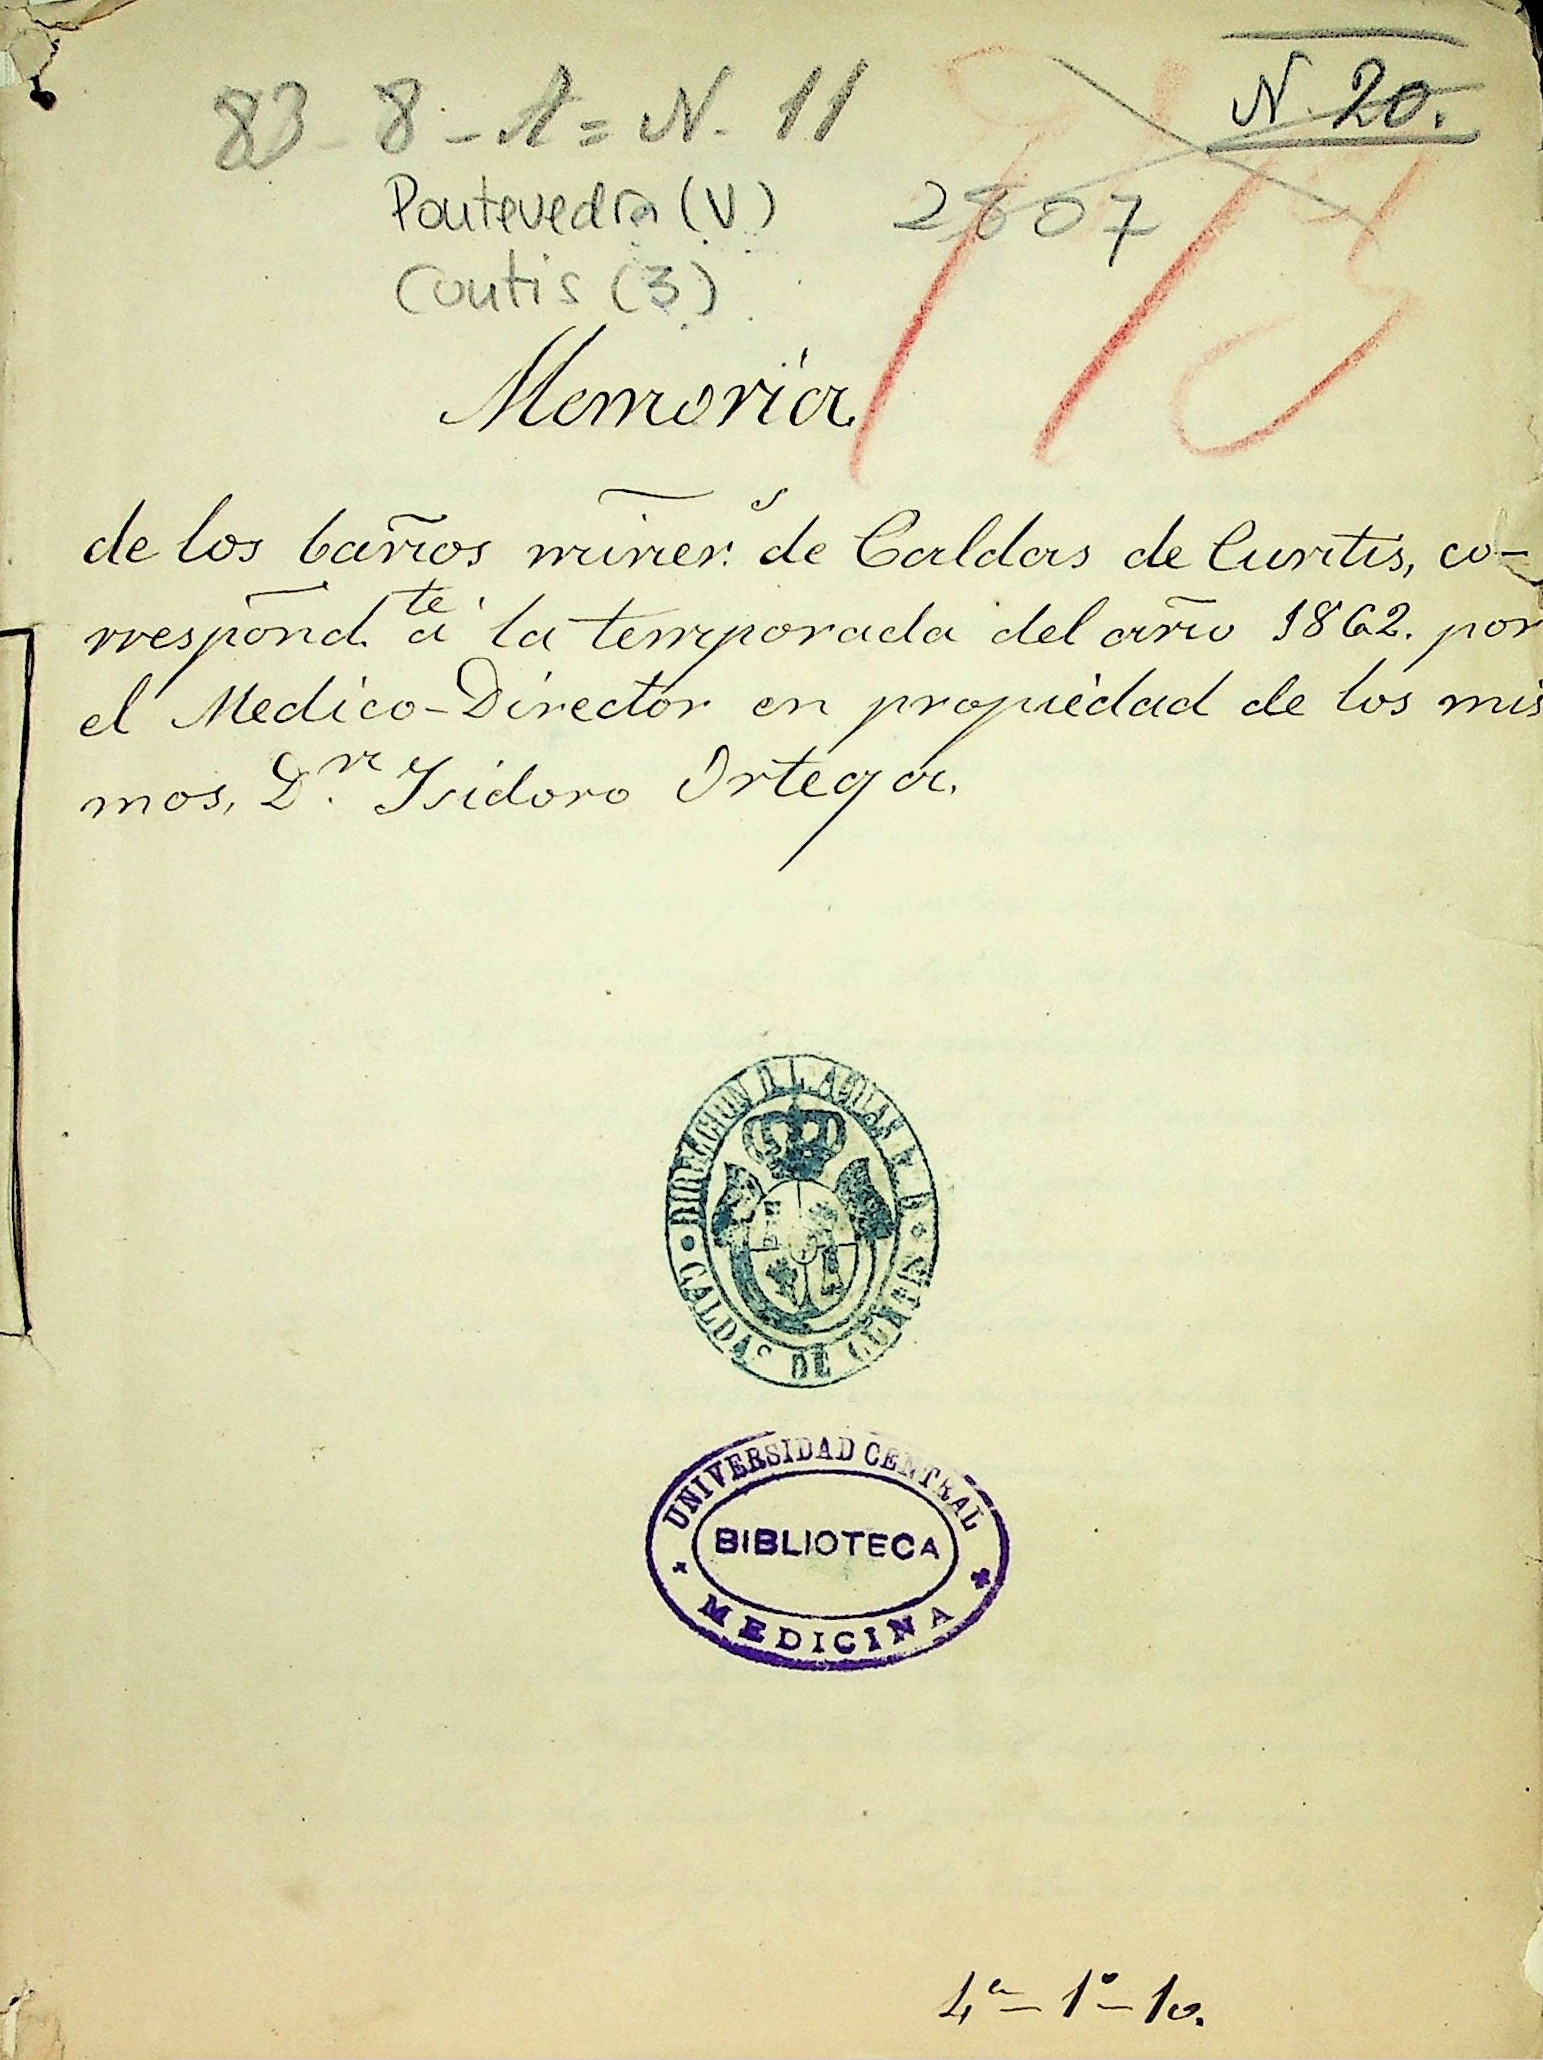 N. 20.
83 - 8 - A = N. 11
Pontevedra (V) 2807
Cuntis (3)
Memoria
de los baños miner.s de Caldas de Cuntis, co-
rrespond.te á la temporada del año 1862. por
el Medico-Director en propiedad de los mis
mos, D.n Isidoro Ortega.
DIRECCION D L. AGUAS M D
CALDAS DE CUNTIS
UNIVERSIDAD CENTRAL
BIBLIOTECA
MEDICINA
4a - 1o - 10.